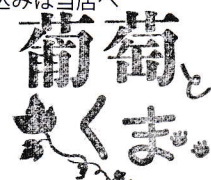 込みは当店へ
葡萄と
くま